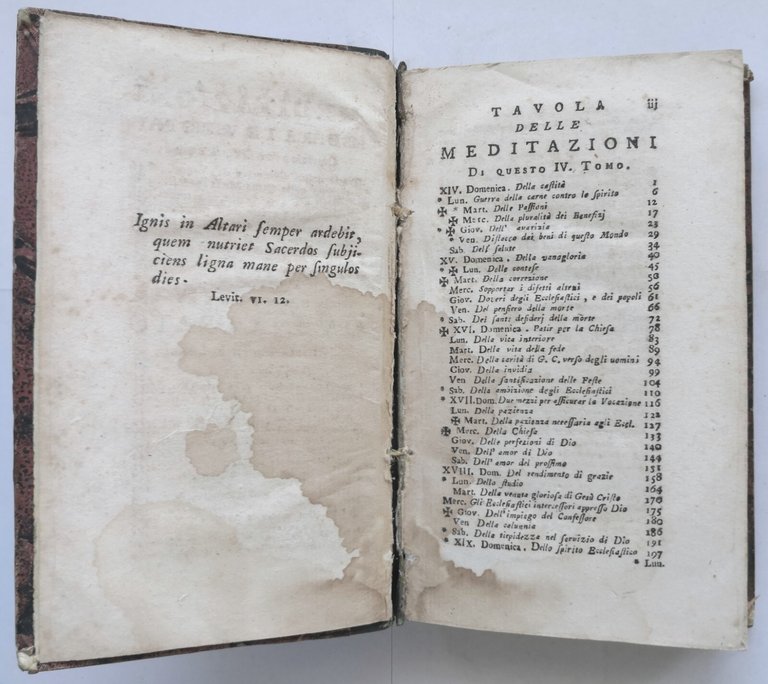 Ignis in Altari ſemper ardebit,
quem nutriet Sacerdos ſubji-
ciens ligna mane per ſingulos
dies.
Levit. VI. 12.
TAVOLA iij
DELLE
MEDITAZIONI
DI QUESTO IV. TOMO.
XIV. Domenica. Della caſtità 1
* Lun. Guerra della carne contro lo ſpirito 6
* ✠ Mart. Delle Paſſioni 12
✠ Merc. Della pluralità dei Benefizj 17
* ✠ Giov. Dell' avarizia 23
* Ven. Diſtacco dai beni di queſto Mondo 29
Sab. Dell' ſalute 34
XV. Domenica. Della vanagloria 40
* ✠ Lun. Delle conteſe 45
✠ Mart. Della correzione 50
Merc. Sopportar i difetti altrui 56
Giov. Doveri degli Eccleſiaſtici, e dei popoli 61
Ven. Del penſiero della morte 66
* Sab. Dei ſanti deſiderj della morte 72
✠ XVI. Domenica. Patir per la Chieſa 78
Lun. Della vita interiore 83
Mart. Della vita della fede 89
Merc. Della carità di G. C. verſo degli uomini 94
Giov. Della invidia 99
Ven Della ſantificazione delle Feſte 104
* Sab. Della ambizione degli Eccleſiaſtici 110
* XVII. Dom. Due mezzi per aſſicurar la Vocazione 116
Lun. Della pazienza 122
✠ Mart. Della pazienza neceſſaria agli Eccl. 127
✠ Merc. Della Chieſa 133
Giov. Delle perfezioni di Dio 140
Ven. Dell' amor di Dio 144
Sab. Dell' amor del proſſimo 151
XVIII. Dom. Del rendimento di grazie 158
* Lun. Dello ſtudio 164
Mart. Della venuta glorioſa di Gesù Criſto 170
Merc. Gli Eccleſiaſtici interceſſori appreſſo Dio 175
✠ Giov. Dell' impiego del Confeſſore 180
Ven Della calunnia 186
* Sab. Della tiepidezza nel ſervizio di Dio 191
* XIX. Domenica. Dello ſpirito Eccleſiaſtico 197
* Lun.